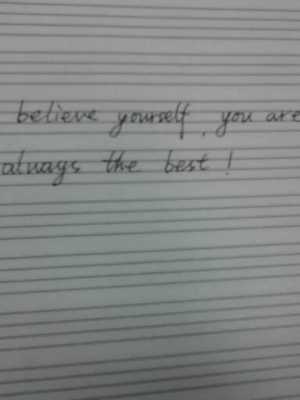 believe yourself, you are
always the best!